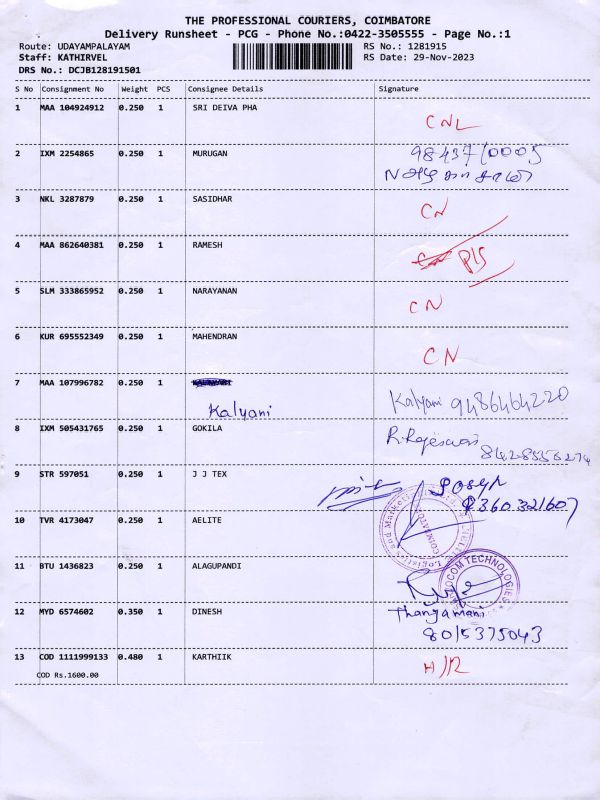 THE PROFESSIONAL COURIERS, COIMBATORE
Delivery Runsheet - PCG - Phone No.:0422-3505555 - Page No.:1
Route: UDAYAMPALAYAM RS No.: 1281915
Staff: KATHIRVEL RS Date: 29-Nov-2023
DRS No.: DCJB128191501
S No Consignment No Weight PCS Consignee Details Signature
1 MAA 104924912 0.250 1 SRI DEIVA PHA
CNL
2 IXM 2254865 0.250 1 MURUGAN
3 NKL 3287879 0.250 1 SASIDHAR
CN
4 MAA 862640381 0.250 1 RAMESH
CN PIS
5 SLM 333865952 0.250 1 NARAYANAN
CN
6 KUR 695552349 0.250 1 MAHENDRAN
CN
7 MAA 107996782 0.250 1
Kalyani Kalyani 9486464220
8 IXM 505431765 0.250 1 GOKILA
8428556274
9 STR 597051 0.250 1 J J TEX
10 TVR 4173047 0.250 1 AELITE
COIMBATORE
11 BTU 1436823 0.250 1 ALAGUPANDI
TECHNOLOGIES
12 MYD 6574602 0.350 1 DINESH
Thangamani
8015375043
13 COD 1111999133 0.480 1 KARTHIIK
COD Rs.1600.00